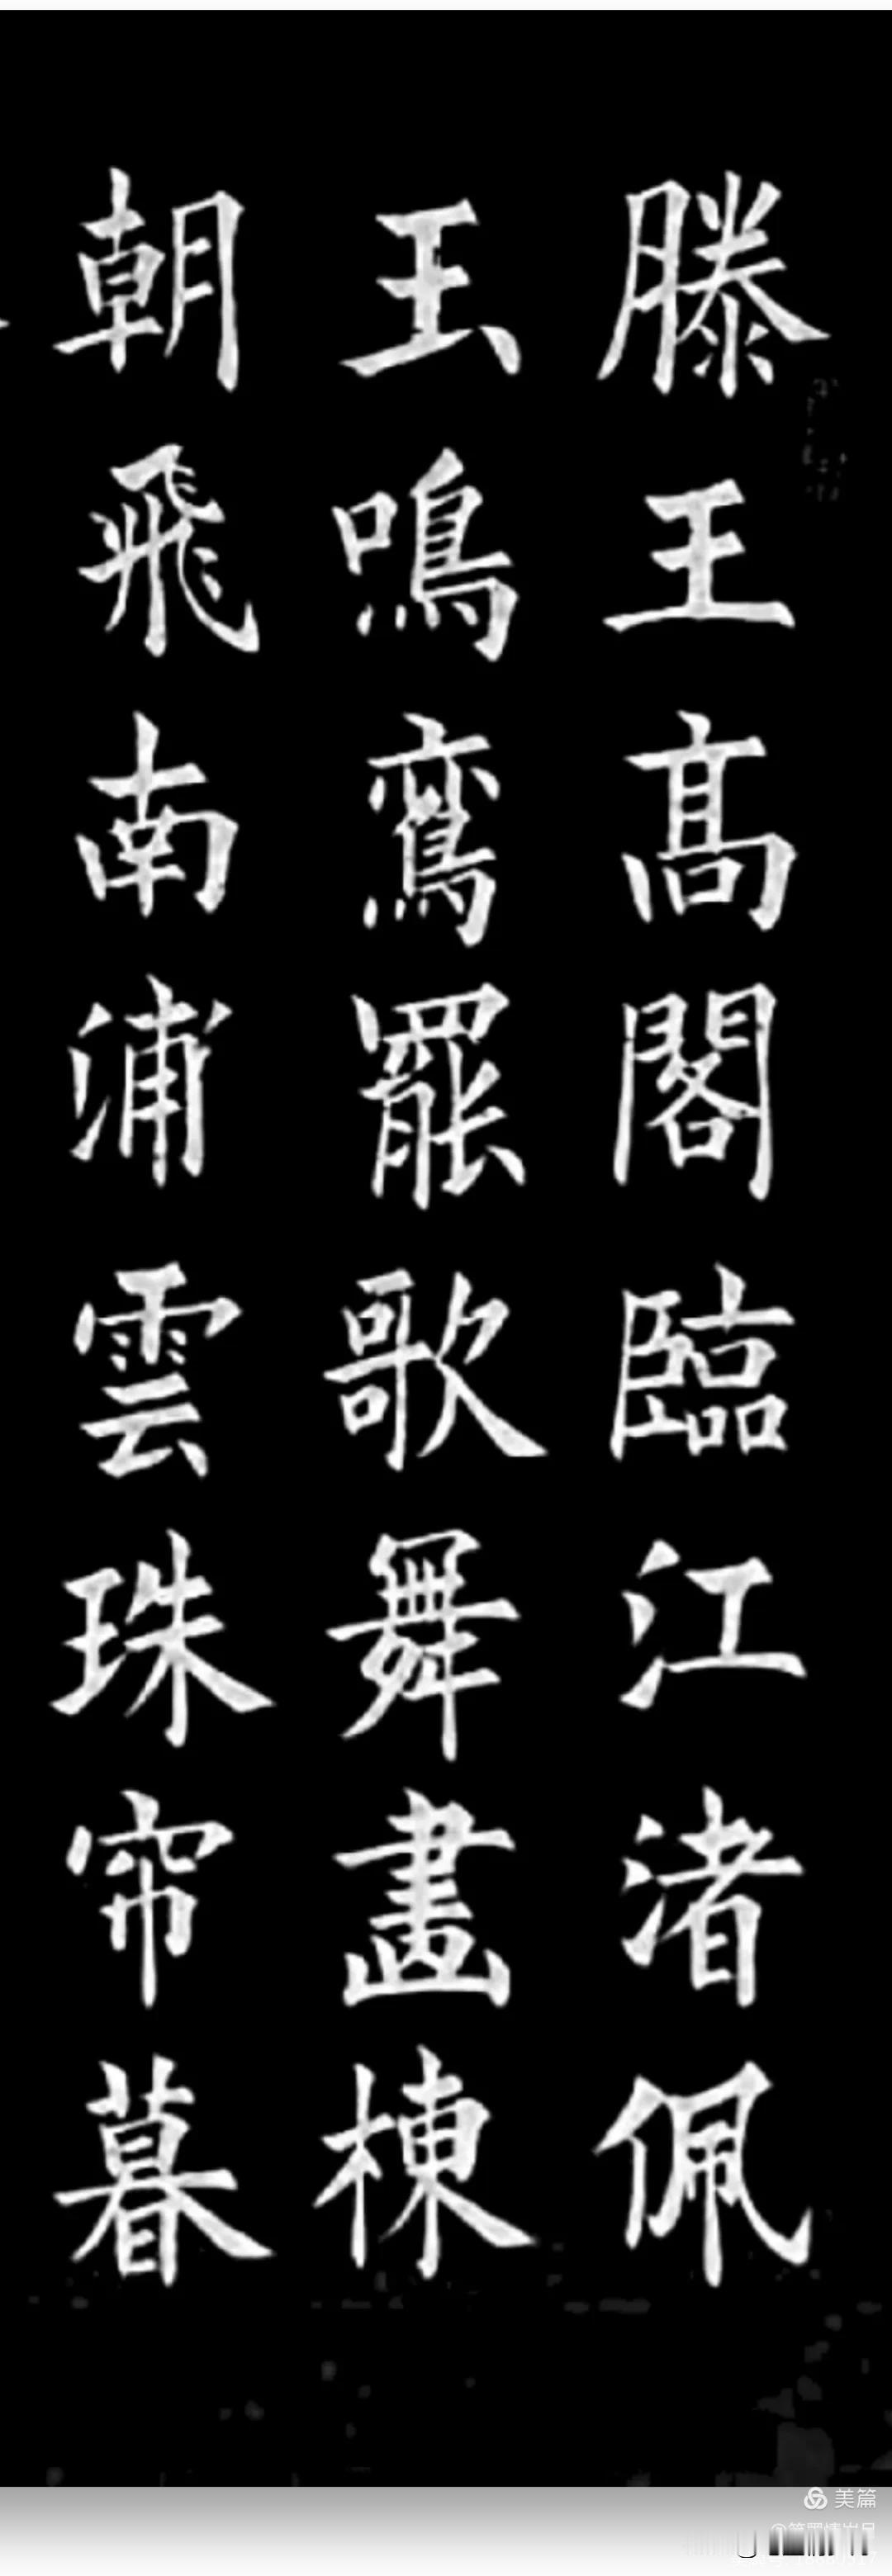 滕王高閣臨江渚佩
玉鳴鸞罷歌舞畫棟
朝飛南浦雲珠帘暮
美篇